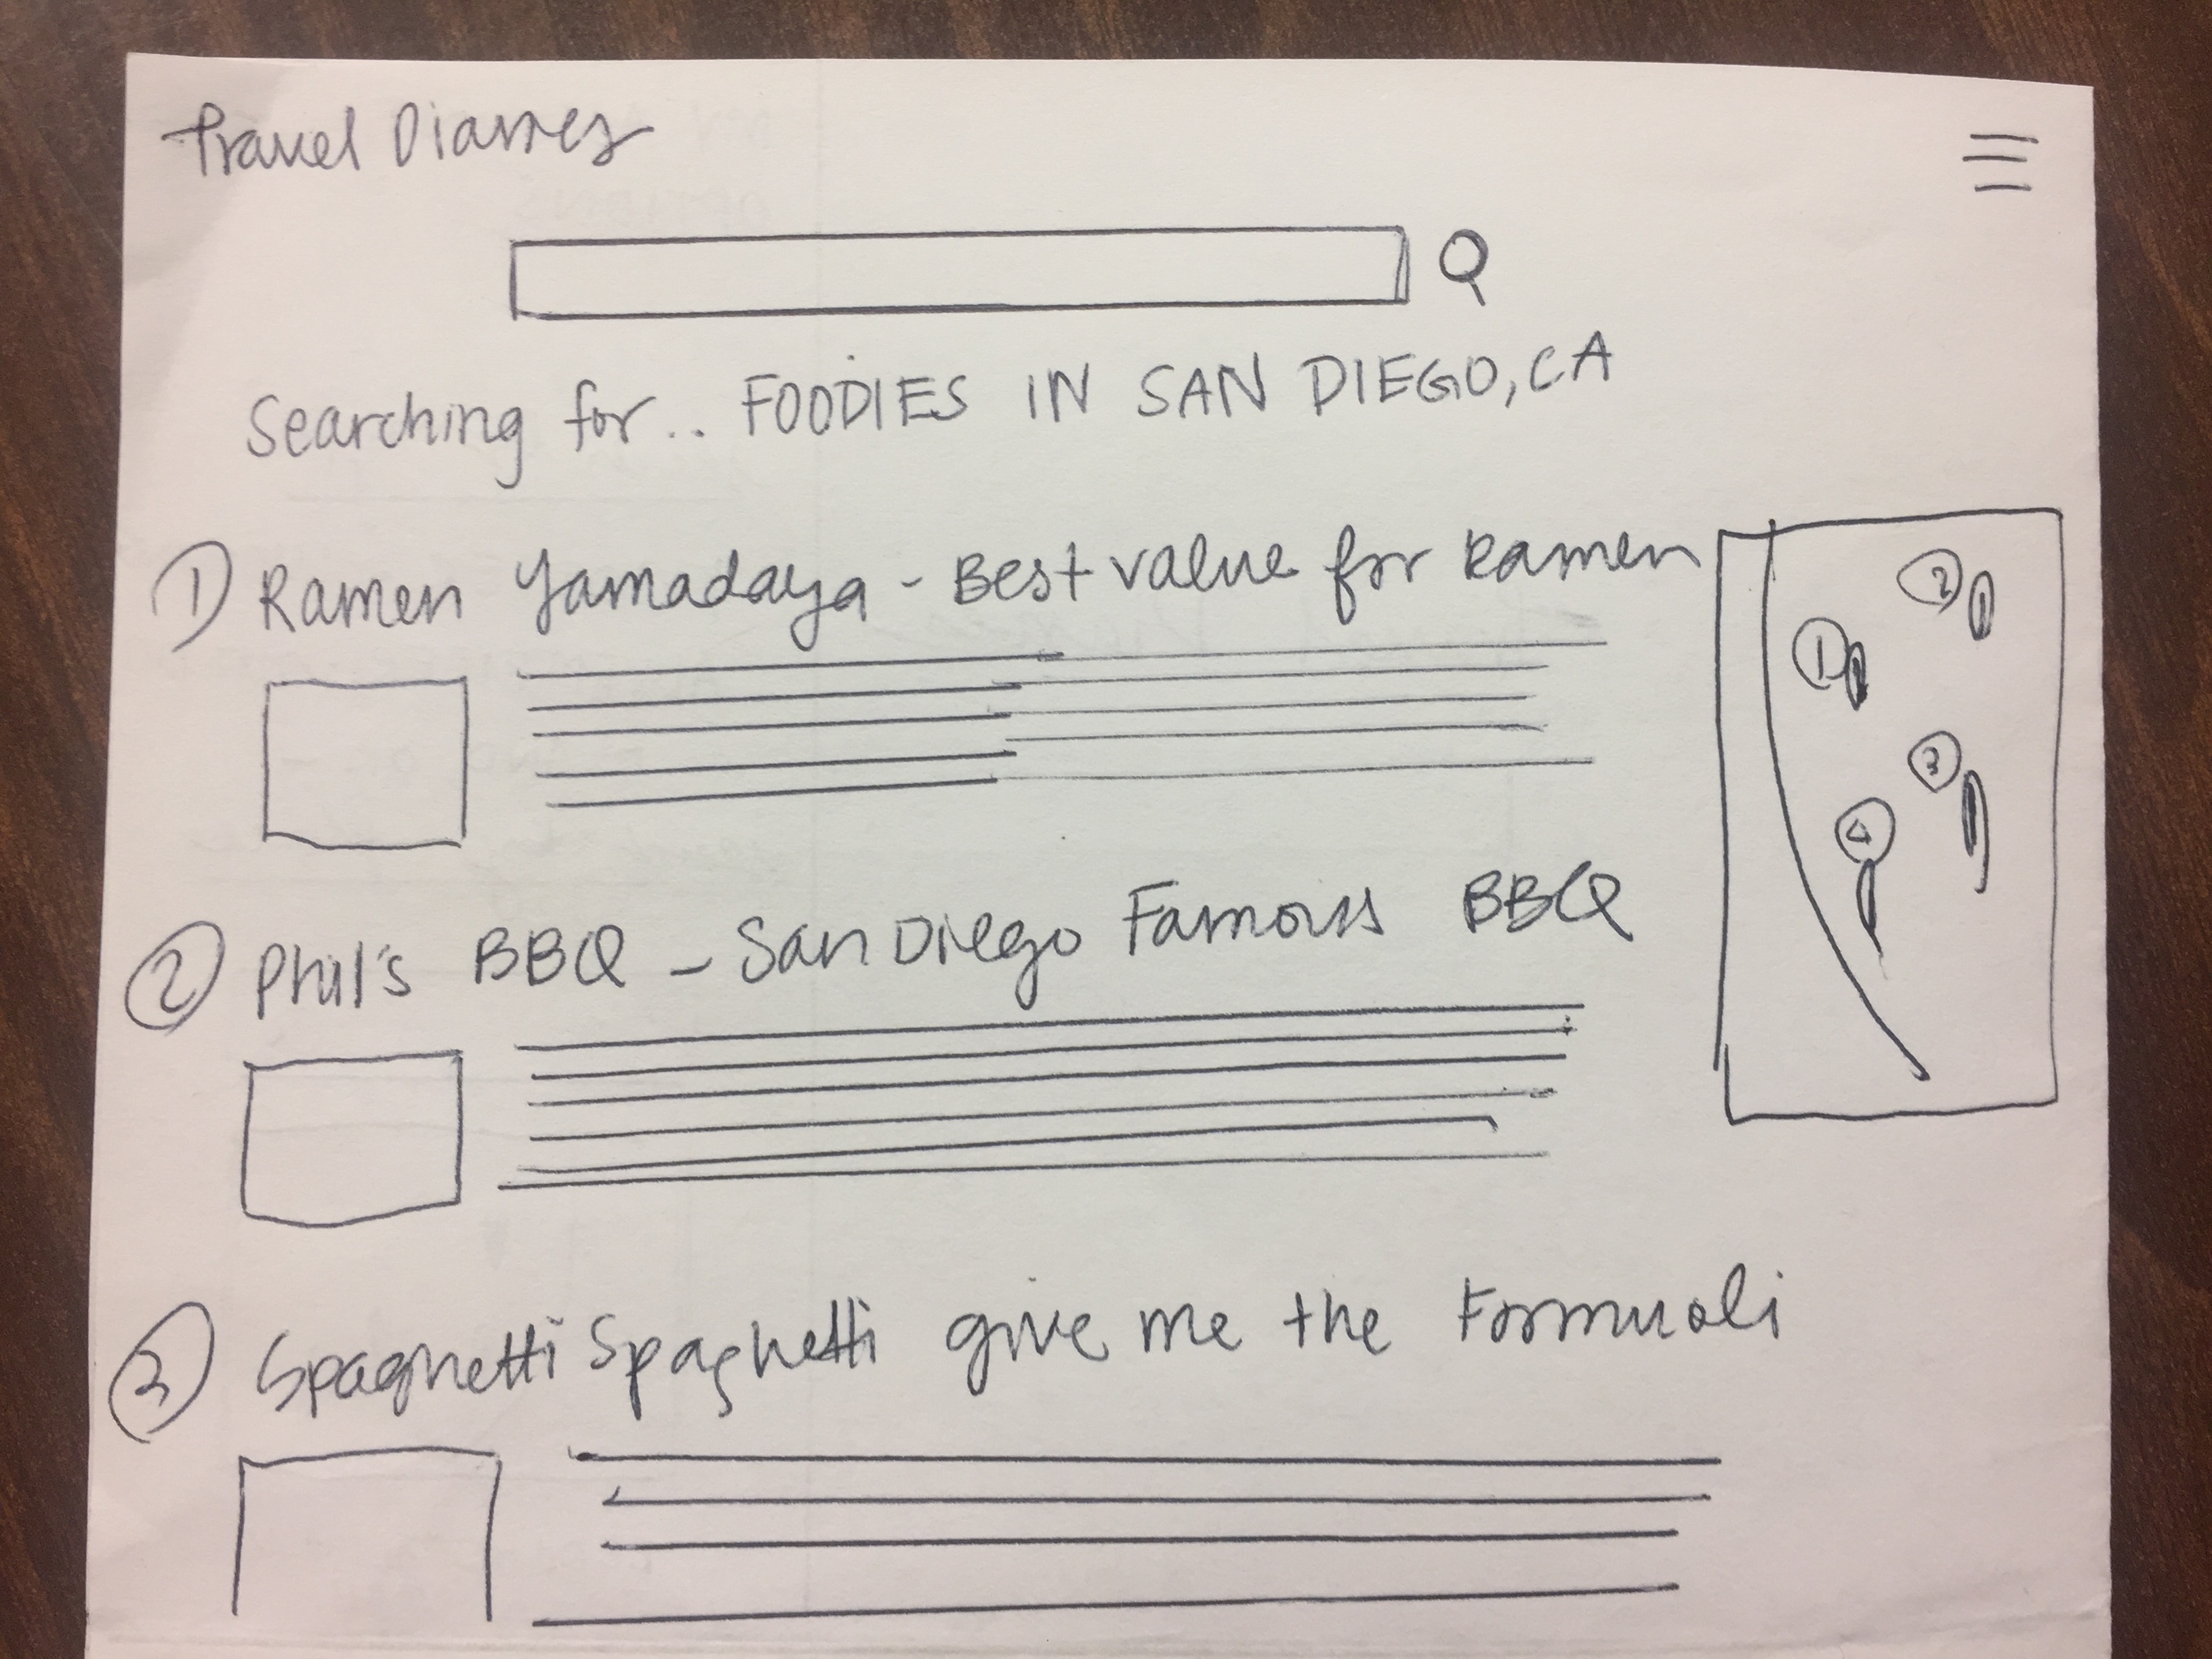 Travel Diaries
Searching for.. FOODIES IN SAN DIEGO, CA
1 Ramen Yamadaya - Best value for Ramen
2
1
3
4
2 Phil's BBQ - San Diego Famous BBQ
3 Spaghetti Spaghetti give me the Formuoli